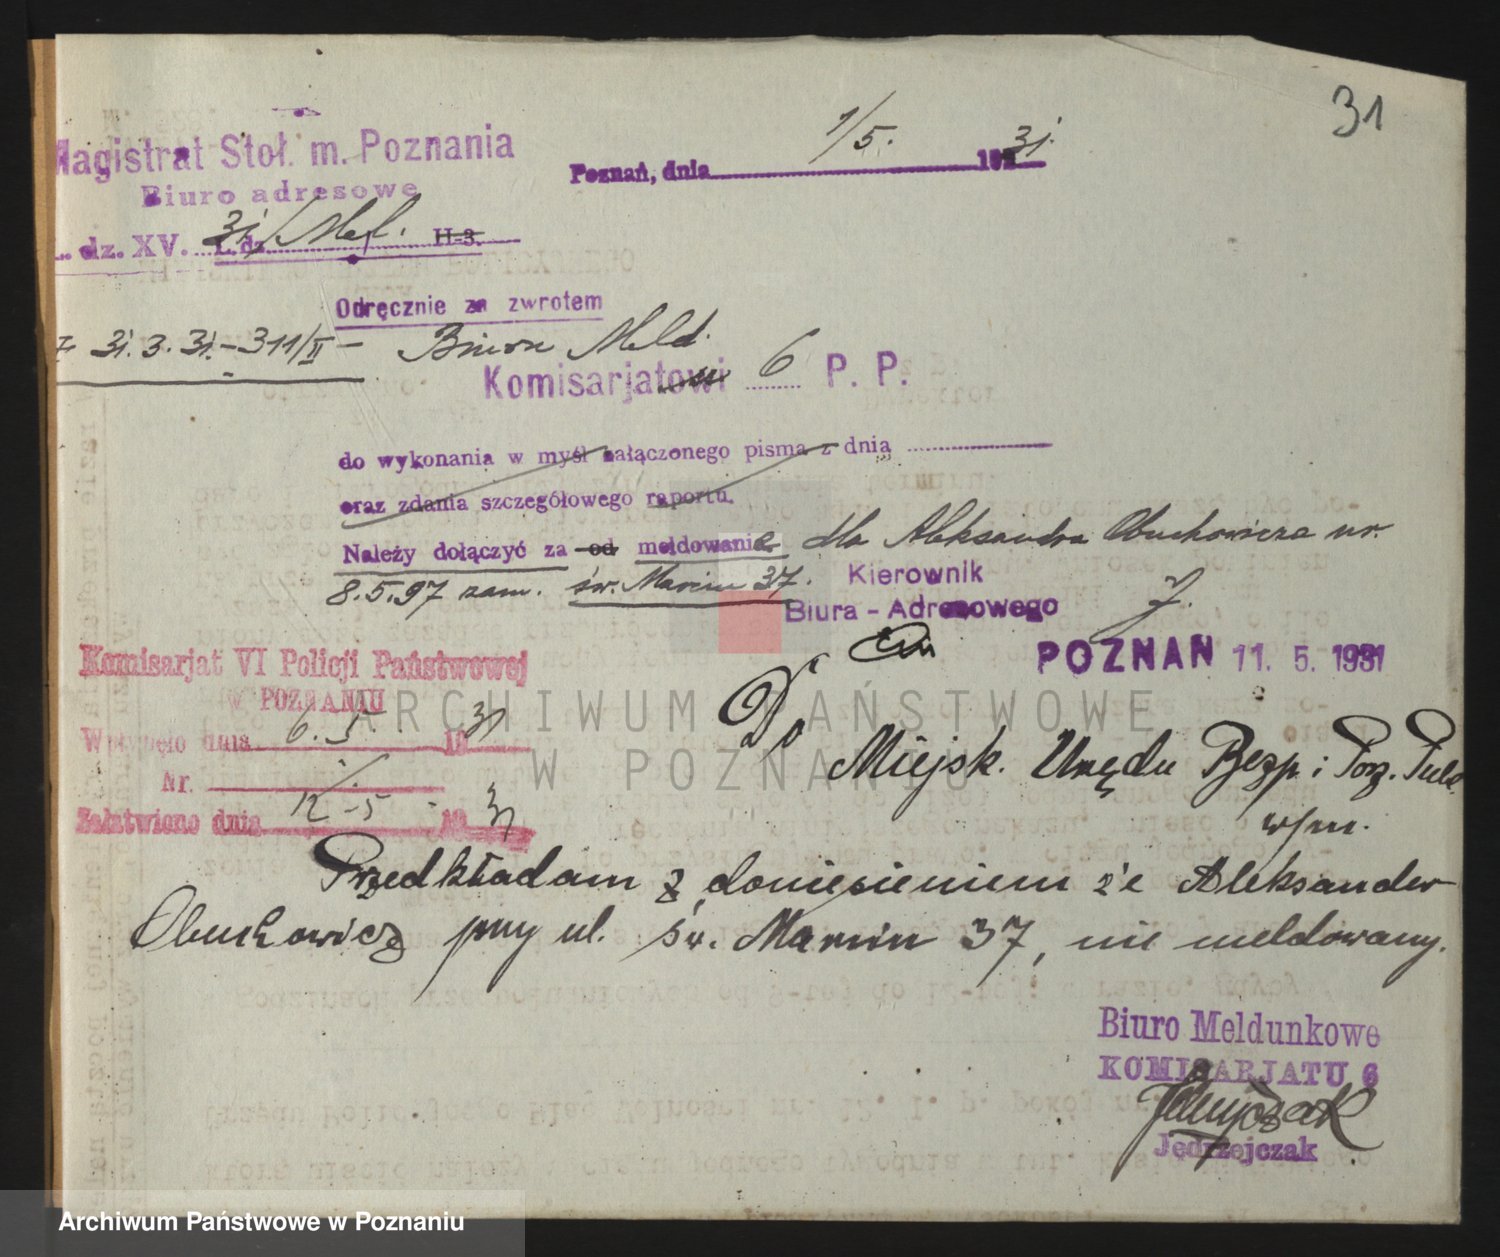 31
Magistrat Stoł. m. Poznania
Biuro adresowe
Poznań, dnia 1/5. 1931.
L. dz. XV. L. dz. 31/Mel. H-3.
Odręcznie za zwrotem
z 31. 3. 31. - 311/II - Biuru Meld.
Komisarjatowi 6 P. P.
do wykonania w myśl załączonego pisma z dnia
oraz zdania szczegółowego raportu.
Należy dołączyć za od meldowanie dla Aleksandra Obuchowicza ur.
8.5.97 zam. św. Marcin 37.
Kierownik
Biura - Adresowego
POZNAŃ 11. 5. 1931
Komisarjat VI Policji Państwowej
w POZNANIU
Wpłynęło dnia 6. 5. 1931
Nr.
Załatwiono dnia 12-5 - 1931
Do
Miejsk. Urzędu Bezp. i Porz. Publ.
w/m.
Przedkładam z doniesieniem że Aleksander
Obuchowicz przy ul. Św. Marcin 37, nie meldowany.
Biuro Meldunkowe
KOMISARJATU 6
Jędrzejczak
Jędrzejczak
ARCHIWUM PAŃSTWOWE
W POZNANIU
Archiwum Państwowe w Poznaniu